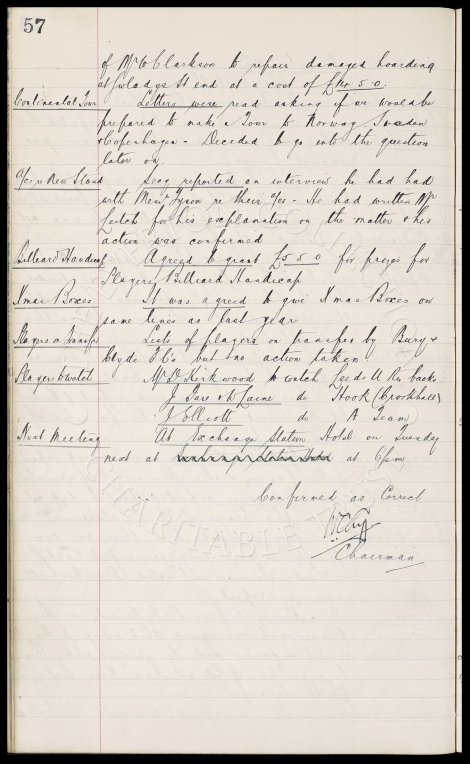 57
of Mr W Clarkson to repair damaged hoarding
at Gwladys St end at a cost of £14.5.0.
Continental Tour Letters were read asking if we would be
prepared to make a Tour to Norway Sweden
& Copenhagen - Decided to go into the question
later on.
A/cs re New Stand Secy reported on interview he had had
with Messrs Tyson re their a/cs - He had written Mr
Leitch for his explanation on the matter & his
action was confirmed
Billiard Handicap Agreed to grant £5.5.0 for prizes for
Players Billiard Handicap
Xmas Boxes It was agreed to give Xmas Boxes on
same lines as last year
Players on Transfer Lists of players on transfer by Bury &
Clyde FC's but no action taken
Players to watch Mr D Kirkwood to watch Leeds U Res backs
J Tare & W Laine do Hook (Crookhall)
J Elliott do A Team
Next Meeting At Exchange Station Hotel on Tuesday
next at at 6pm
Confirmed as Correct
Chairman
CHARITABLE